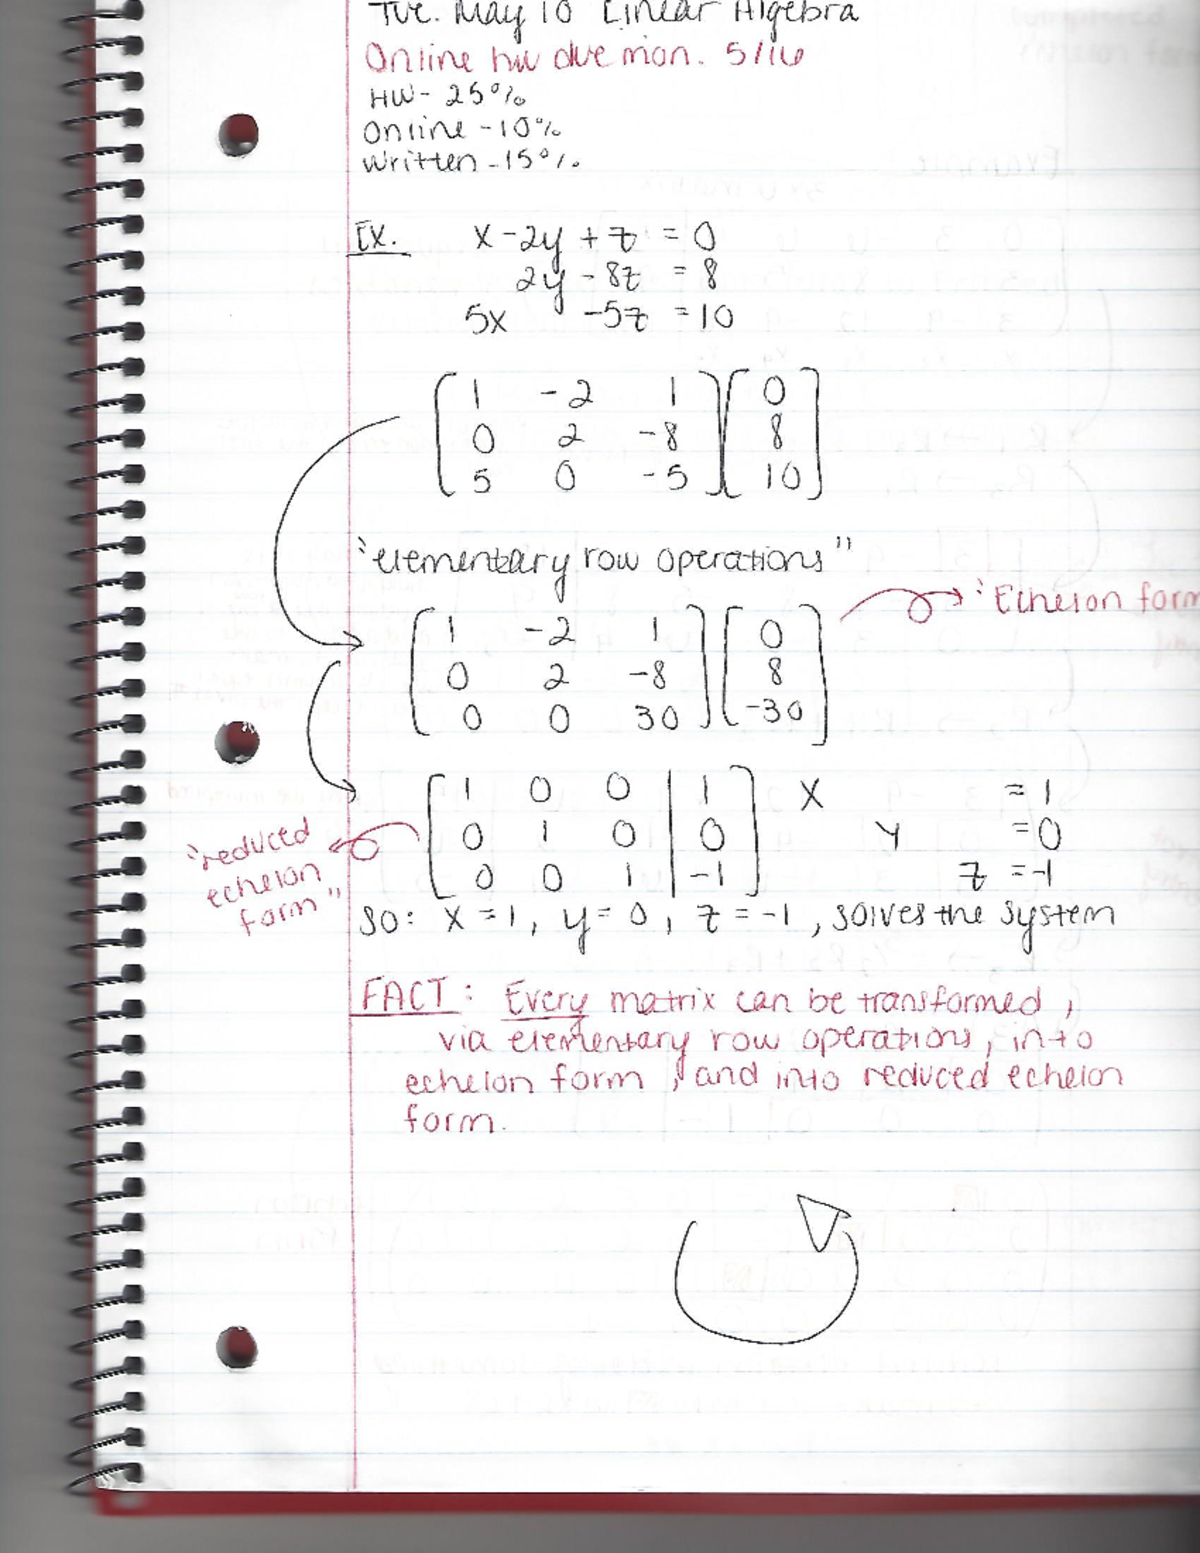 Tue. May 10 Linear Algebra
Online hw due mon. 5/16
HW - 25%
Online - 10%
Written - 15%
EX. x - 2y + z = 0
2y - 8z = 8
5x -5z = 10
[1 -2 1] [0]
[0 2 -8] [8]
[5 0 -5] [10]
"elementary row operations"
"Echelon form
[1 -2 1] [0]
[0 2 -8] [8]
[0 0 30] [-30]
[1 0 0 | 1] x = 1
[0 1 0 | 0] y = 0
[0 0 1 | -1] z = -1
"reduced
echelon
form"
SO: x = 1, y = 0, z = -1, solves the system
FACT: Every matrix can be transformed,
via elementary row operations, into
echelon form, and into reduced echelon
form.